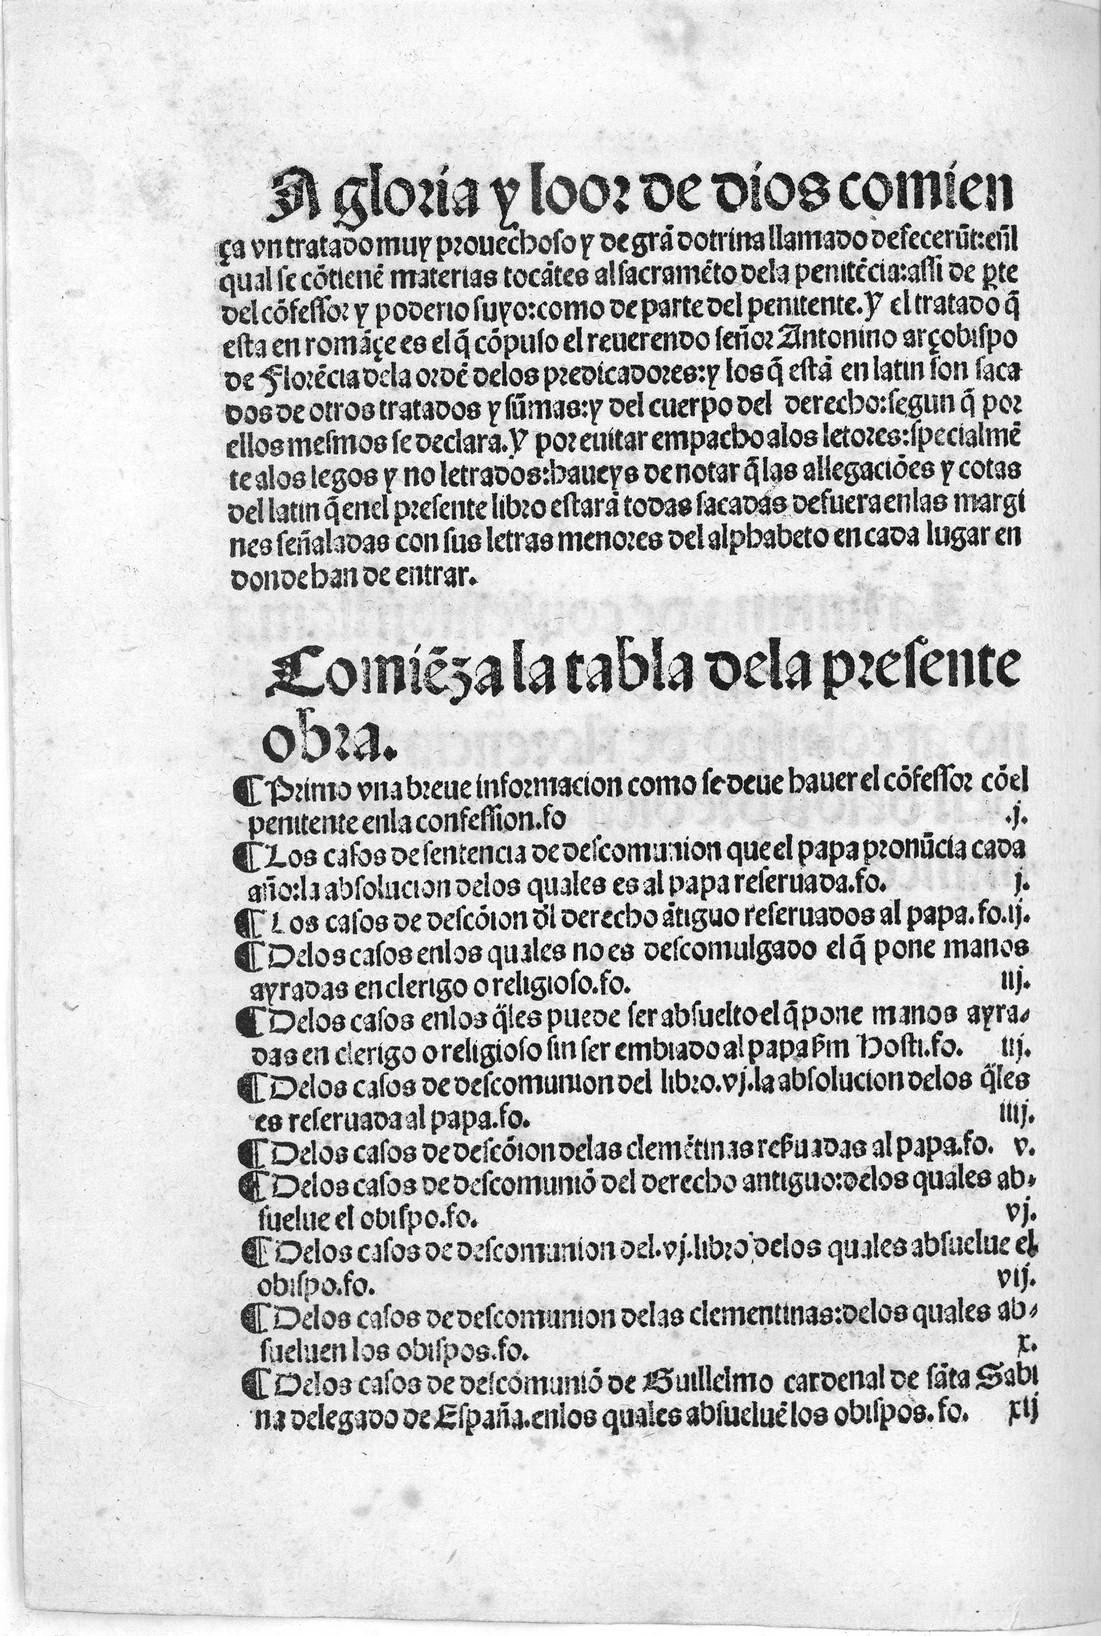 A gloria y loor de dios comien
ça vn tratado muy prouechoso y de grã dotrina llamado defecerũt:eñl
qual se cõtienẽ materias tocãtes al sacramẽto dela penitẽcia:assi de ꝑte
del cõfessor y poderio suyo:como de parte del penitente. Y el tratado q̃
esta en romãçe es el q̃ cõpuso el reuerendo señor Antonino arçobispo
de Florẽcia dela ordẽ delos predicadores:y los q̃ estã en latin son saca
dos de otros tratados y sũmas:y del cuerpo del derecho:segun q̃ por
ellos mesmos se declara. Y por euitar empacho alos letores:specialmẽ
te alos legos y no letrados:haueys de notar q̃ las allegaciões y cotas
del latin q̃ enel presente libro estarã todas sacadas defuera enlas margi
nes señaladas con sus letras menores del alphabeto en cada lugar en
donde han de entrar.
Comiẽza la tabla dela presente
obra.
¶ Primo vna breue informacion como se deue hauer el cõfessor cõel
penitente enla confession.fo .j.
¶ Los casos de sentencia de descomunion que el papa pronũcia cada
año:la absolucion delos quales es al papa reseruada.fo. j.
¶ Los casos de descõion d'l derecho ãtiguo reseruados al papa.fo.ij.
¶ Delos casos enlos quales no es descomulgado el q̃ pone manos
ayradas en clerigo o religioso.fo. iij.
¶ Delos casos enlos q̃les puede ser absuelto el q̃ pone manos ayra⸗
das en clerigo o religioso sin ser embiado al papa ẜm Hosti.fo. iij.
¶ Delos casos de descomunion del libro.vj.la absolucion delos q̃les
es reseruada al papa.fo. iiij.
¶ Delos casos de descõion delas clemẽtinas reẜuadas al papa.fo. v.
¶ Delos casos de descomuniõ del derecho antiguo:delos quales ab⸗
suelue el obispo.fo. vj.
¶ Delos casos de descomunion del.vj.libro delos quales absuelue el
obispo.fo. vij.
¶ Delos casos de descomunion delas clementinas:delos quales ab⸗
sueluen los obispos.fo. x.
¶ Delos casos de descomuniõ de Guillelmo cardenal de sãta Sabi
na delegado de España.enlos quales absueluẽ los obispos.fo. xij